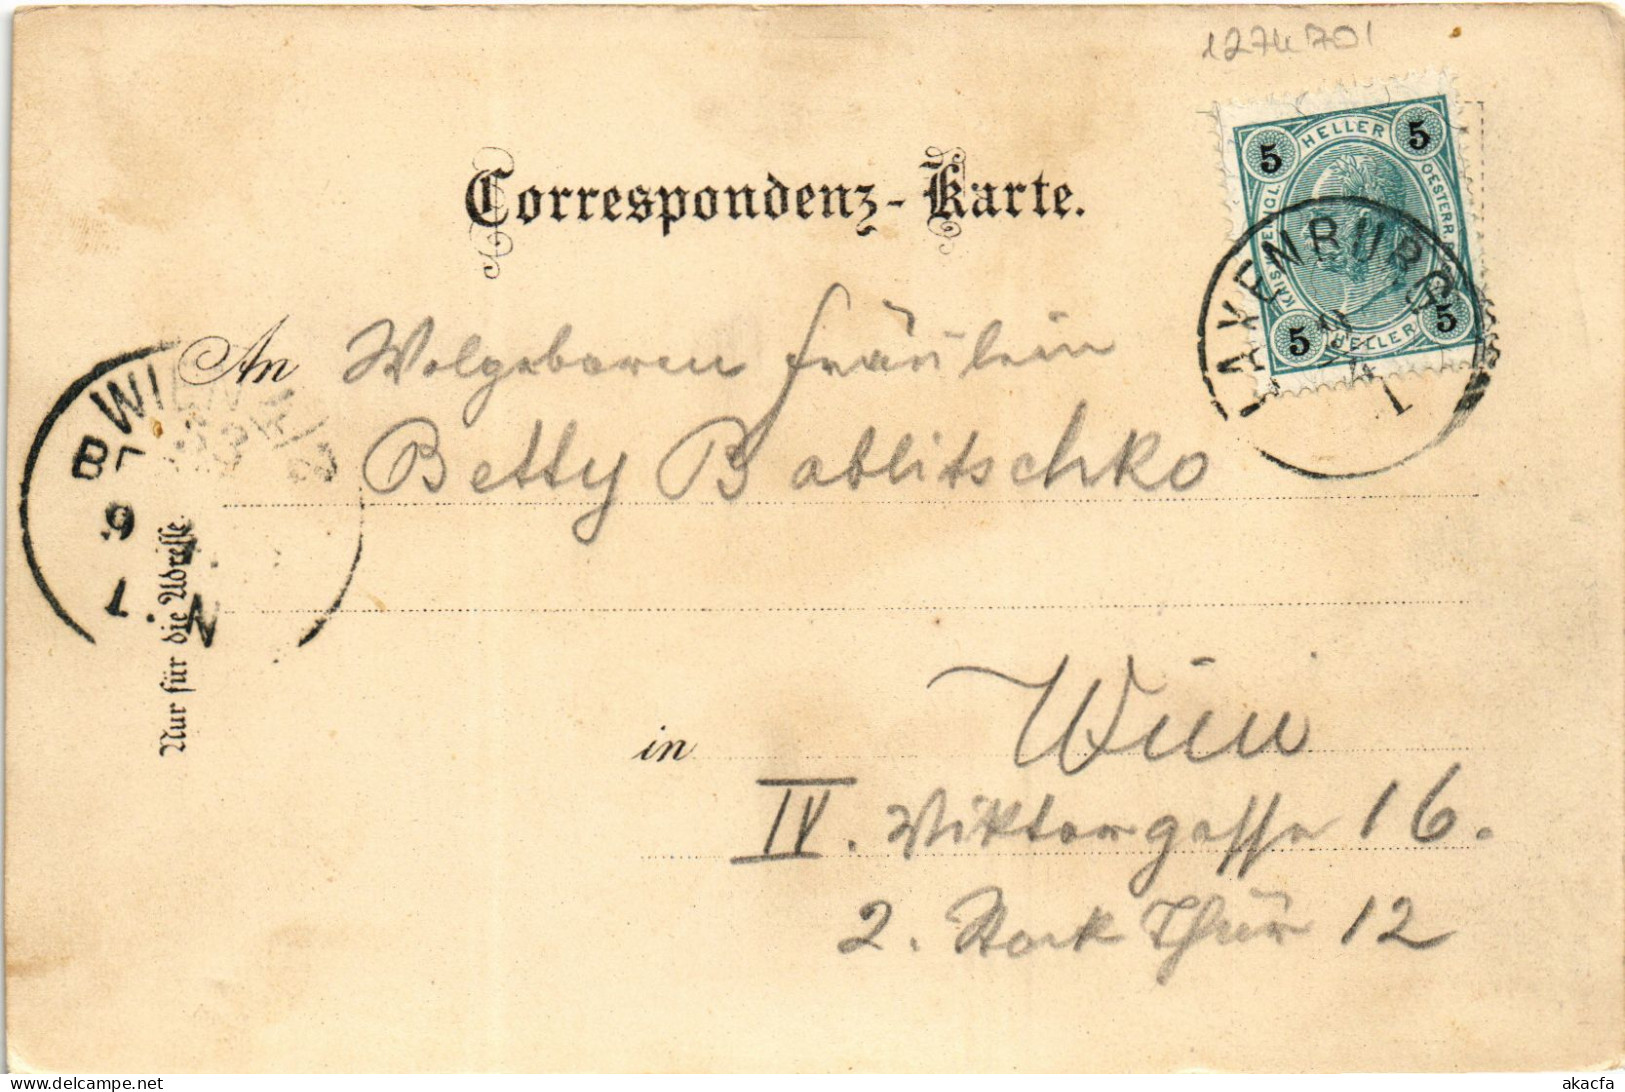 1274701
Correspondenz-Karte.
5 HELLER 5
KAIS. KÖNIGL. OESTERR.
5 HELLER 5
LAXENBURG
9
1
WIEN 4/2
B
7
9
1
N
An Wolgeboren Fräulein
Betty Bablitschko
Nur für die Adresse.
in Wien
IV. Wiktorgasse 16.
2. Stock Thür 12
delcampe.net
akacfa